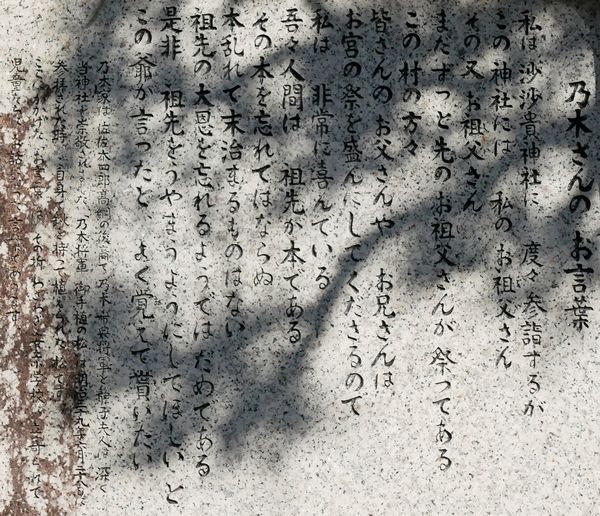 乃木さんの お言葉
私は 沙沙貴神社に 度々参詣するが、
この神社には 私の お祖父さん
その又 お祖父さん
まだずっと先の お祖父さんが 祭ってある
この村の方々
皆さんの お父さんや お兄さんは
お宮の祭を盛んにしてくださるので
私は 非常に喜んでいる
吾々人間は 祖先が本である
その本を忘れてはならぬ
本乱れて末治まるものはない
祖先の大恩を忘れるようではだめである
是非 祖先をうやまうようにしてほしいと
この爺が言ったと、よく覚えて貰いたい
乃木家は 佐佐木四郎高綱の後裔で 乃木希典将軍と静子夫人は 深く
当神社を崇敬され 乃木将軍 御手植の松は明治三十九年
参拝された時 自身 鍬を持って植えられた松で
お言葉は その折
児童